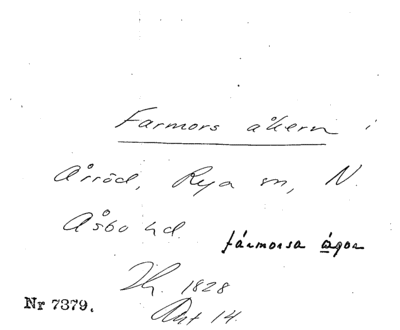 Farmors åkern i
Årröd, Rya sn, N.
Åsbo hd.
fármorsa ågor
1828
Akt 14.
Nr 7379.